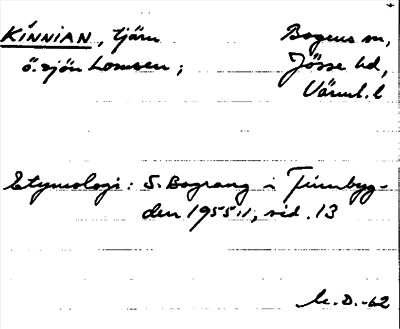 KINNIAN, tjärn
ö. sjön Lomsen;
Bogens sn,
Jösse hd,
Värml. l
Etymologi: S. Bograng i Finnbyg-
den 1955:1, sid. 13
M.D.-62